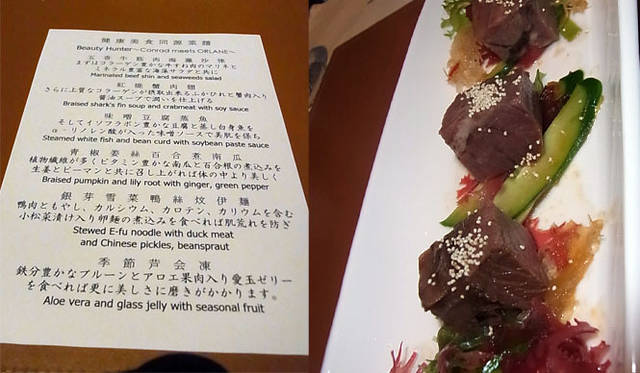 健康美食同源菜譜
Beauty Hunter～Conrad meets ORLANE～
五香牛筋肉海藻沙律
まずはコラーゲン豊かな牛すね肉のマリネと
ミネラル豊富な海藻サラダと共に
Marinated beef shin and seaweeds salad
紅燒蟹肉翅
さらに上質なコラーゲンが摂取出来るふかひれと蟹肉入り
醤油スープで潤いを仕上げる
Braised shark's fin soup and crabmeat with soy sauce
味噌豆腐蒸魚
そしてイソフラボン豊かな豆腐と蒸し白身魚を
α-リノレン酸が入った味噌ソースで美肌を保ち
Steamed white fish and bean curd with soybean paste sauce
青椒姜絲百合煮南瓜
植物繊維が多くビタミン豊かな南瓜と百合根の煮込みを
生姜とピーマンと共に召し上がれば体の中より美しく
Braised pumpkin and lily root with ginger, green pepper
銀芽雪菜鴨絲炆伊麺
鴨肉ともやし、カルシウム、カロテン、カリウムを含む
小松菜漬け入り卵麺の煮込みを食べれば肌荒れを防ぎ
Stewed E-fu noodle with duck meat
and Chinese pickles, beanspraut
季節芦会凍
鉄分豊かなプルーンとアロエ果肉入り愛玉ゼリー
を食べれば更に美しさに磨きがかかります。
Aloe vera and glass jelly with seasonal fruit